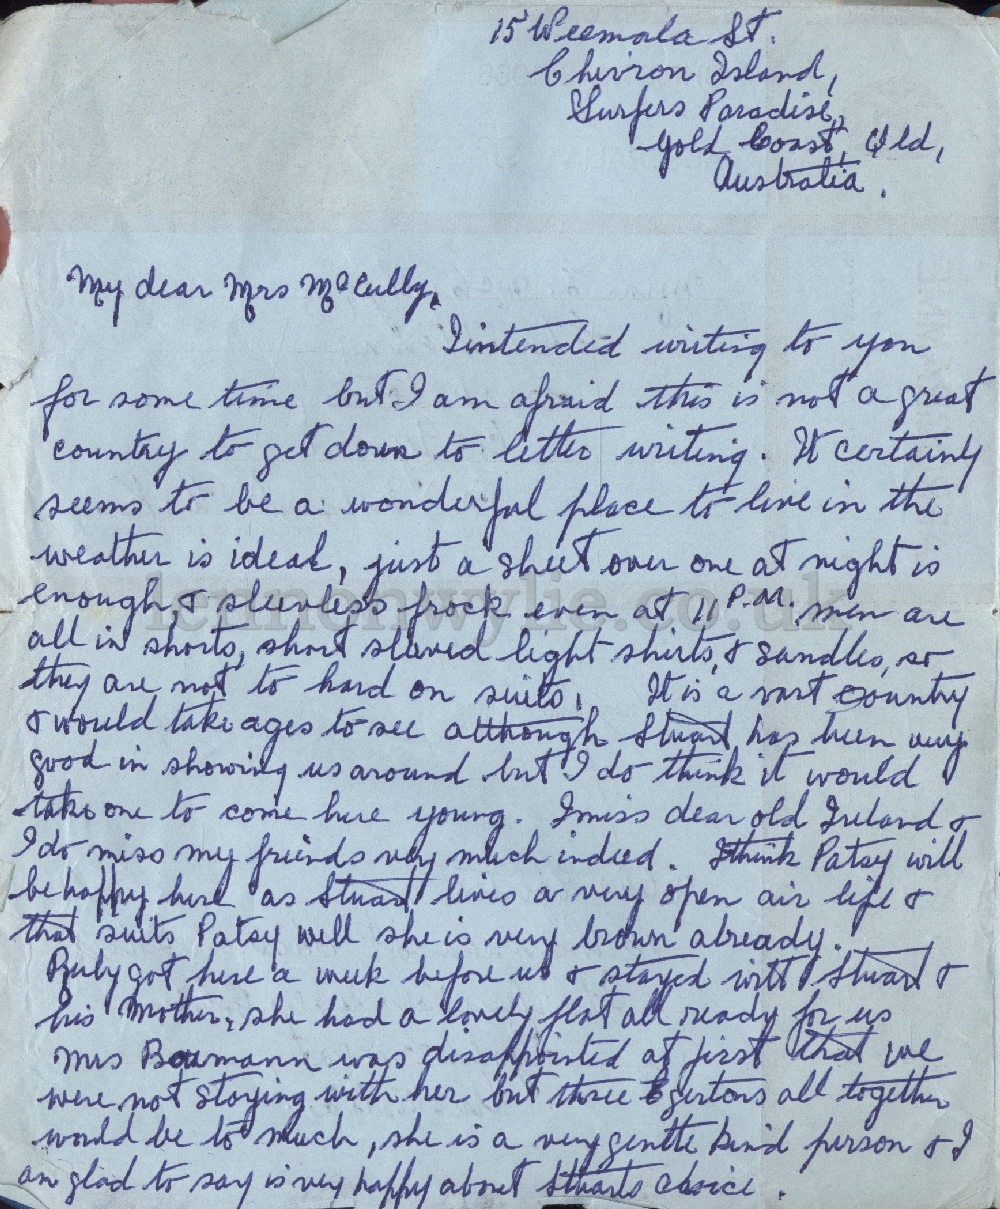 15 Weemala St.
Chivron Island,
Surfers Paradise,
Gold Coast, Qld,
Australia.
My dear Mrs McCully,
I intended writing to you
for some time but I am afraid this is not a great
country to get down to letter writing. It certainly
seems to be a wonderful place to live in the
weather is ideal, just a sheet over one at night is
enough, & sleevless frock even at 11 P.M. men are
lennonwylie.co.uk
all in shorts, short sleved light shirts, & sandles, so
they are not to hard on suits. It is a vast country
& would take ages to see although Stuart has been very
good in showing us around but I do think it would
take one to come here young. I miss dear old Ireland &
I do miss my friends very much indeed. I think Patsy will
be happy here as Stuart lives a very open air life &
that suits Patsy well she is very brown already.
Ruby got here a week before us & stayed with Stuart &
his Mother, she had a lovely flat all ready for us
Mrs Baumann was disappointed at first that we
were not staying with her but three Egertons all together
would be to much, she is a very gentle kind person & I
am glad to say is very happy about Stuarts choice.